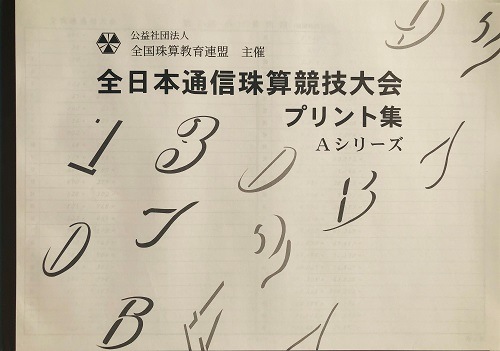 公益社団法人
全国珠算教育連盟 主催
全日本通信珠算競技大会
プリント集
Aシリーズ